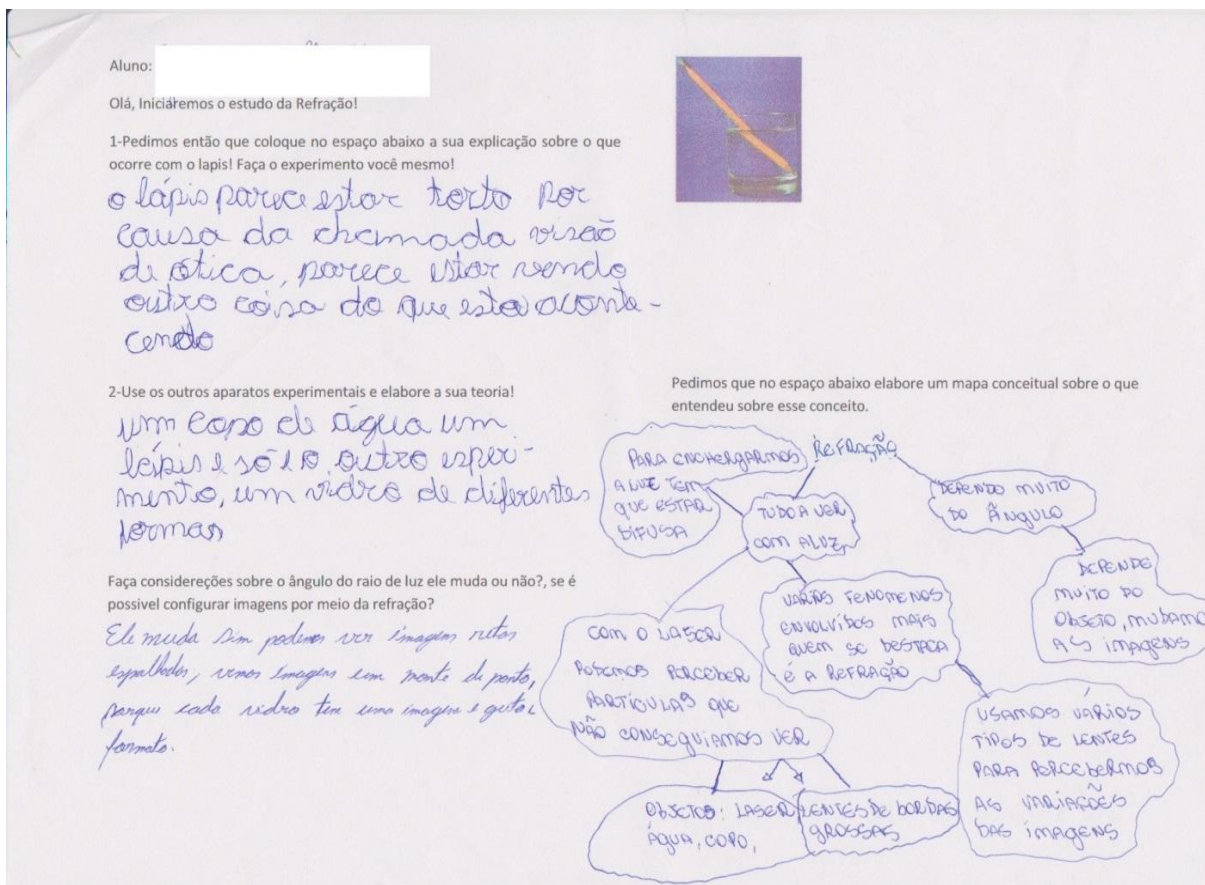 Aluno:
Olá, Iniciaremos o estudo da Refração!
1-Pedimos então que coloque no espaço abaixo a sua explicação sobre o que
ocorre com o lapis! Faça o experimento você mesmo!
o lápis parece estar torto por
causa da chamada visão
de ótica, parece estar vendo
outro coisa do que esta aconte-
cendo
2-Use os outros aparatos experimentais e elabore a sua teoria!
um copo de água um
lápis e só e o outro experi-
mento, um vidro de diferentes
formas
Faça considereções sobre o ângulo do raio de luz ele muda ou não?, se é
possivel configurar imagens por meio da refração?
Ele muda sim podemos ver imagem retas
espalhadas, vemos imagens em monte de ponto,
porque cada vidro tem uma imagem e
formato.
Pedimos que no espaço abaixo elabore um mapa conceitual sobre o que
entendeu sobre esse conceito.
REFRAÇÃO
PARA ENCHERGARMOS
A LUZ TEM
QUE ESTAR
DIFUSA
TUDO A VER
COM A LUZ
DEPENDO MUITO
DO ÂNGULO
DEPENDE
MUITO DO
OBJETO, MUDAMO
AS IMAGENS
VARIOS FENOMENOS
ENVOLVIDOS MAIS
QUEM SE DESTACA
É A REFRAÇÃO
COM O LASER
PODEMOS PERCEBER
PARTÍCULAS QUE
NÃO CONSEGUIAMOS VER
USAMOS VÁRIOS
TIPOS DE LENTES
PARA PERCEBERMOS
AS VARIAÇÕES
DAS IMAGENS
OBJETOS: LASER
ÁGUA, COPO,
LENTES DE BORDAS
GROSSAS